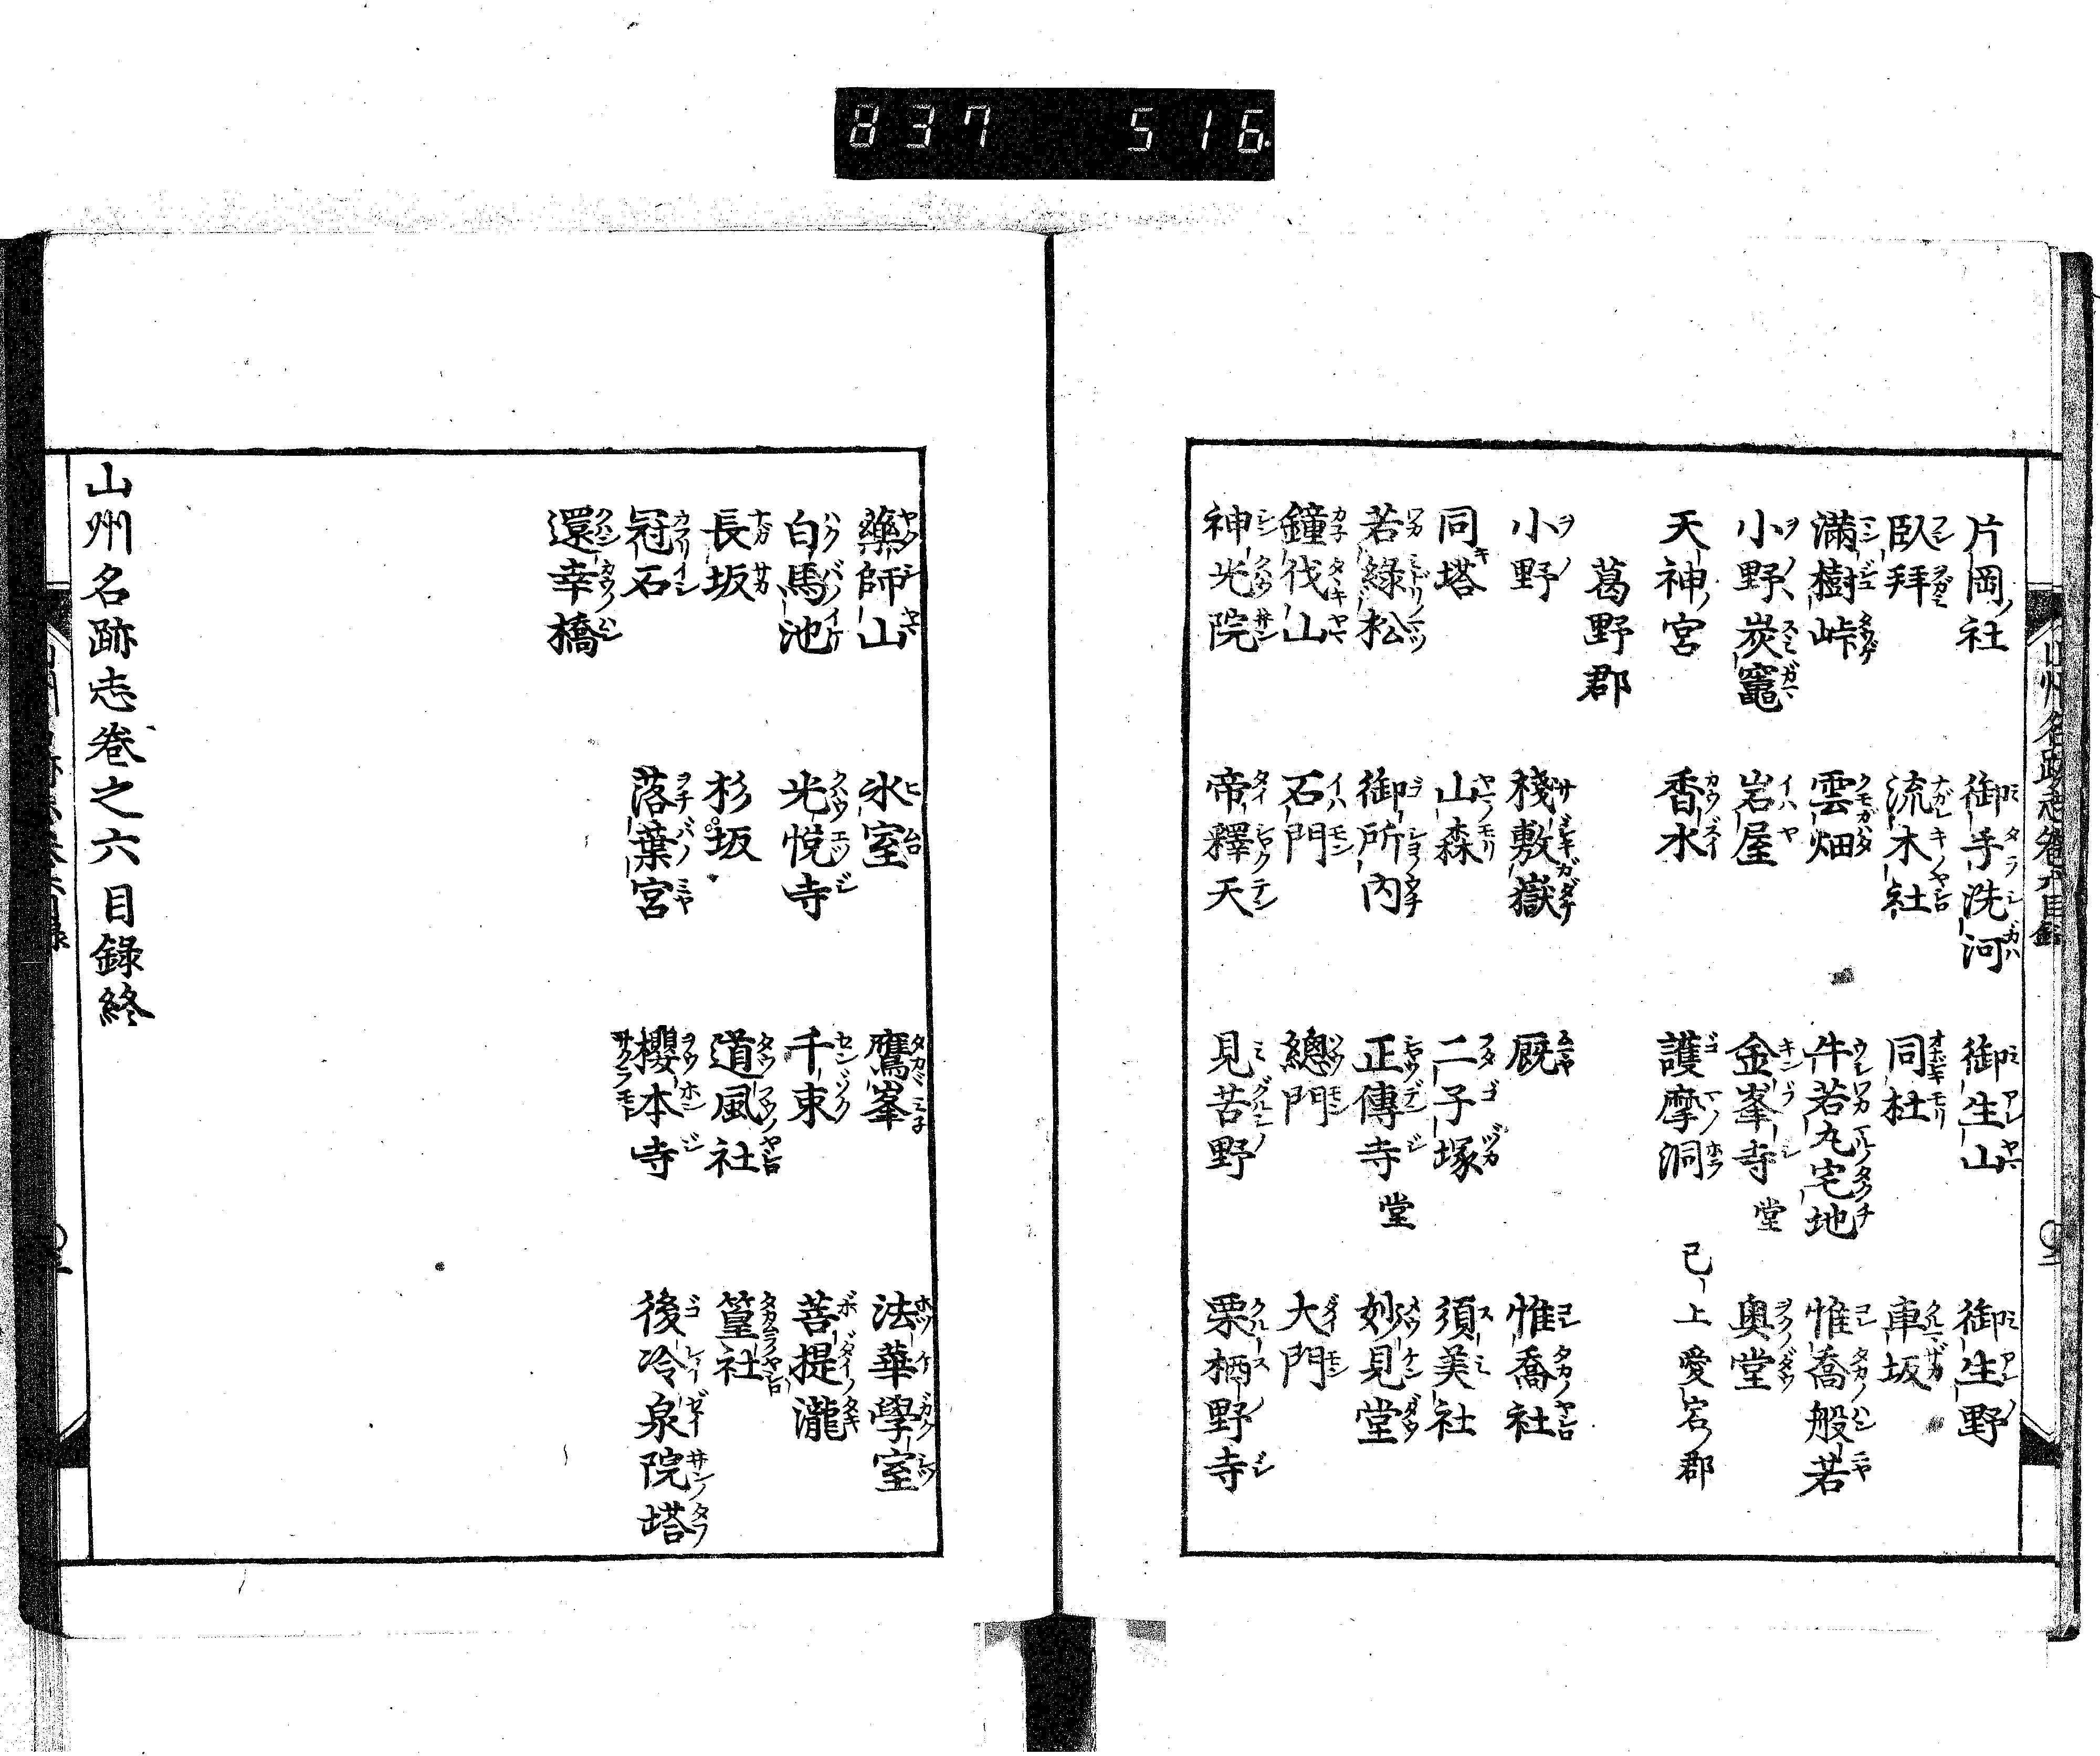 837 516
片岡ノ社 御手洗河 御生山 御生野
臥拜 流木社 同杜 車坂
滿樹峠 雲畑 牛若丸宅地 惟喬般若
小野炭竈 岩屋 金峯寺 堂 奥堂
天神宮 香水 護摩洞 已上愛宕郡
葛野郡
小野 棧敷嶽 厩 惟喬社
同塔 山森 二子塚 須美社
若綠松 御所內 正傳寺 堂 妙見堂
鐘伐山 石門 總門 大門
神光院 帝釋天 見苦野 栗栖野寺
藥師山 氷室 鷹峯 法華學室
白馬池 光悅寺 千束 菩提瀧
長坂 杉坂 道風社 篁社
冠石 落葉宮 櫻本寺 後冷泉院塔
還幸橋
山州名跡志卷之六目錄終